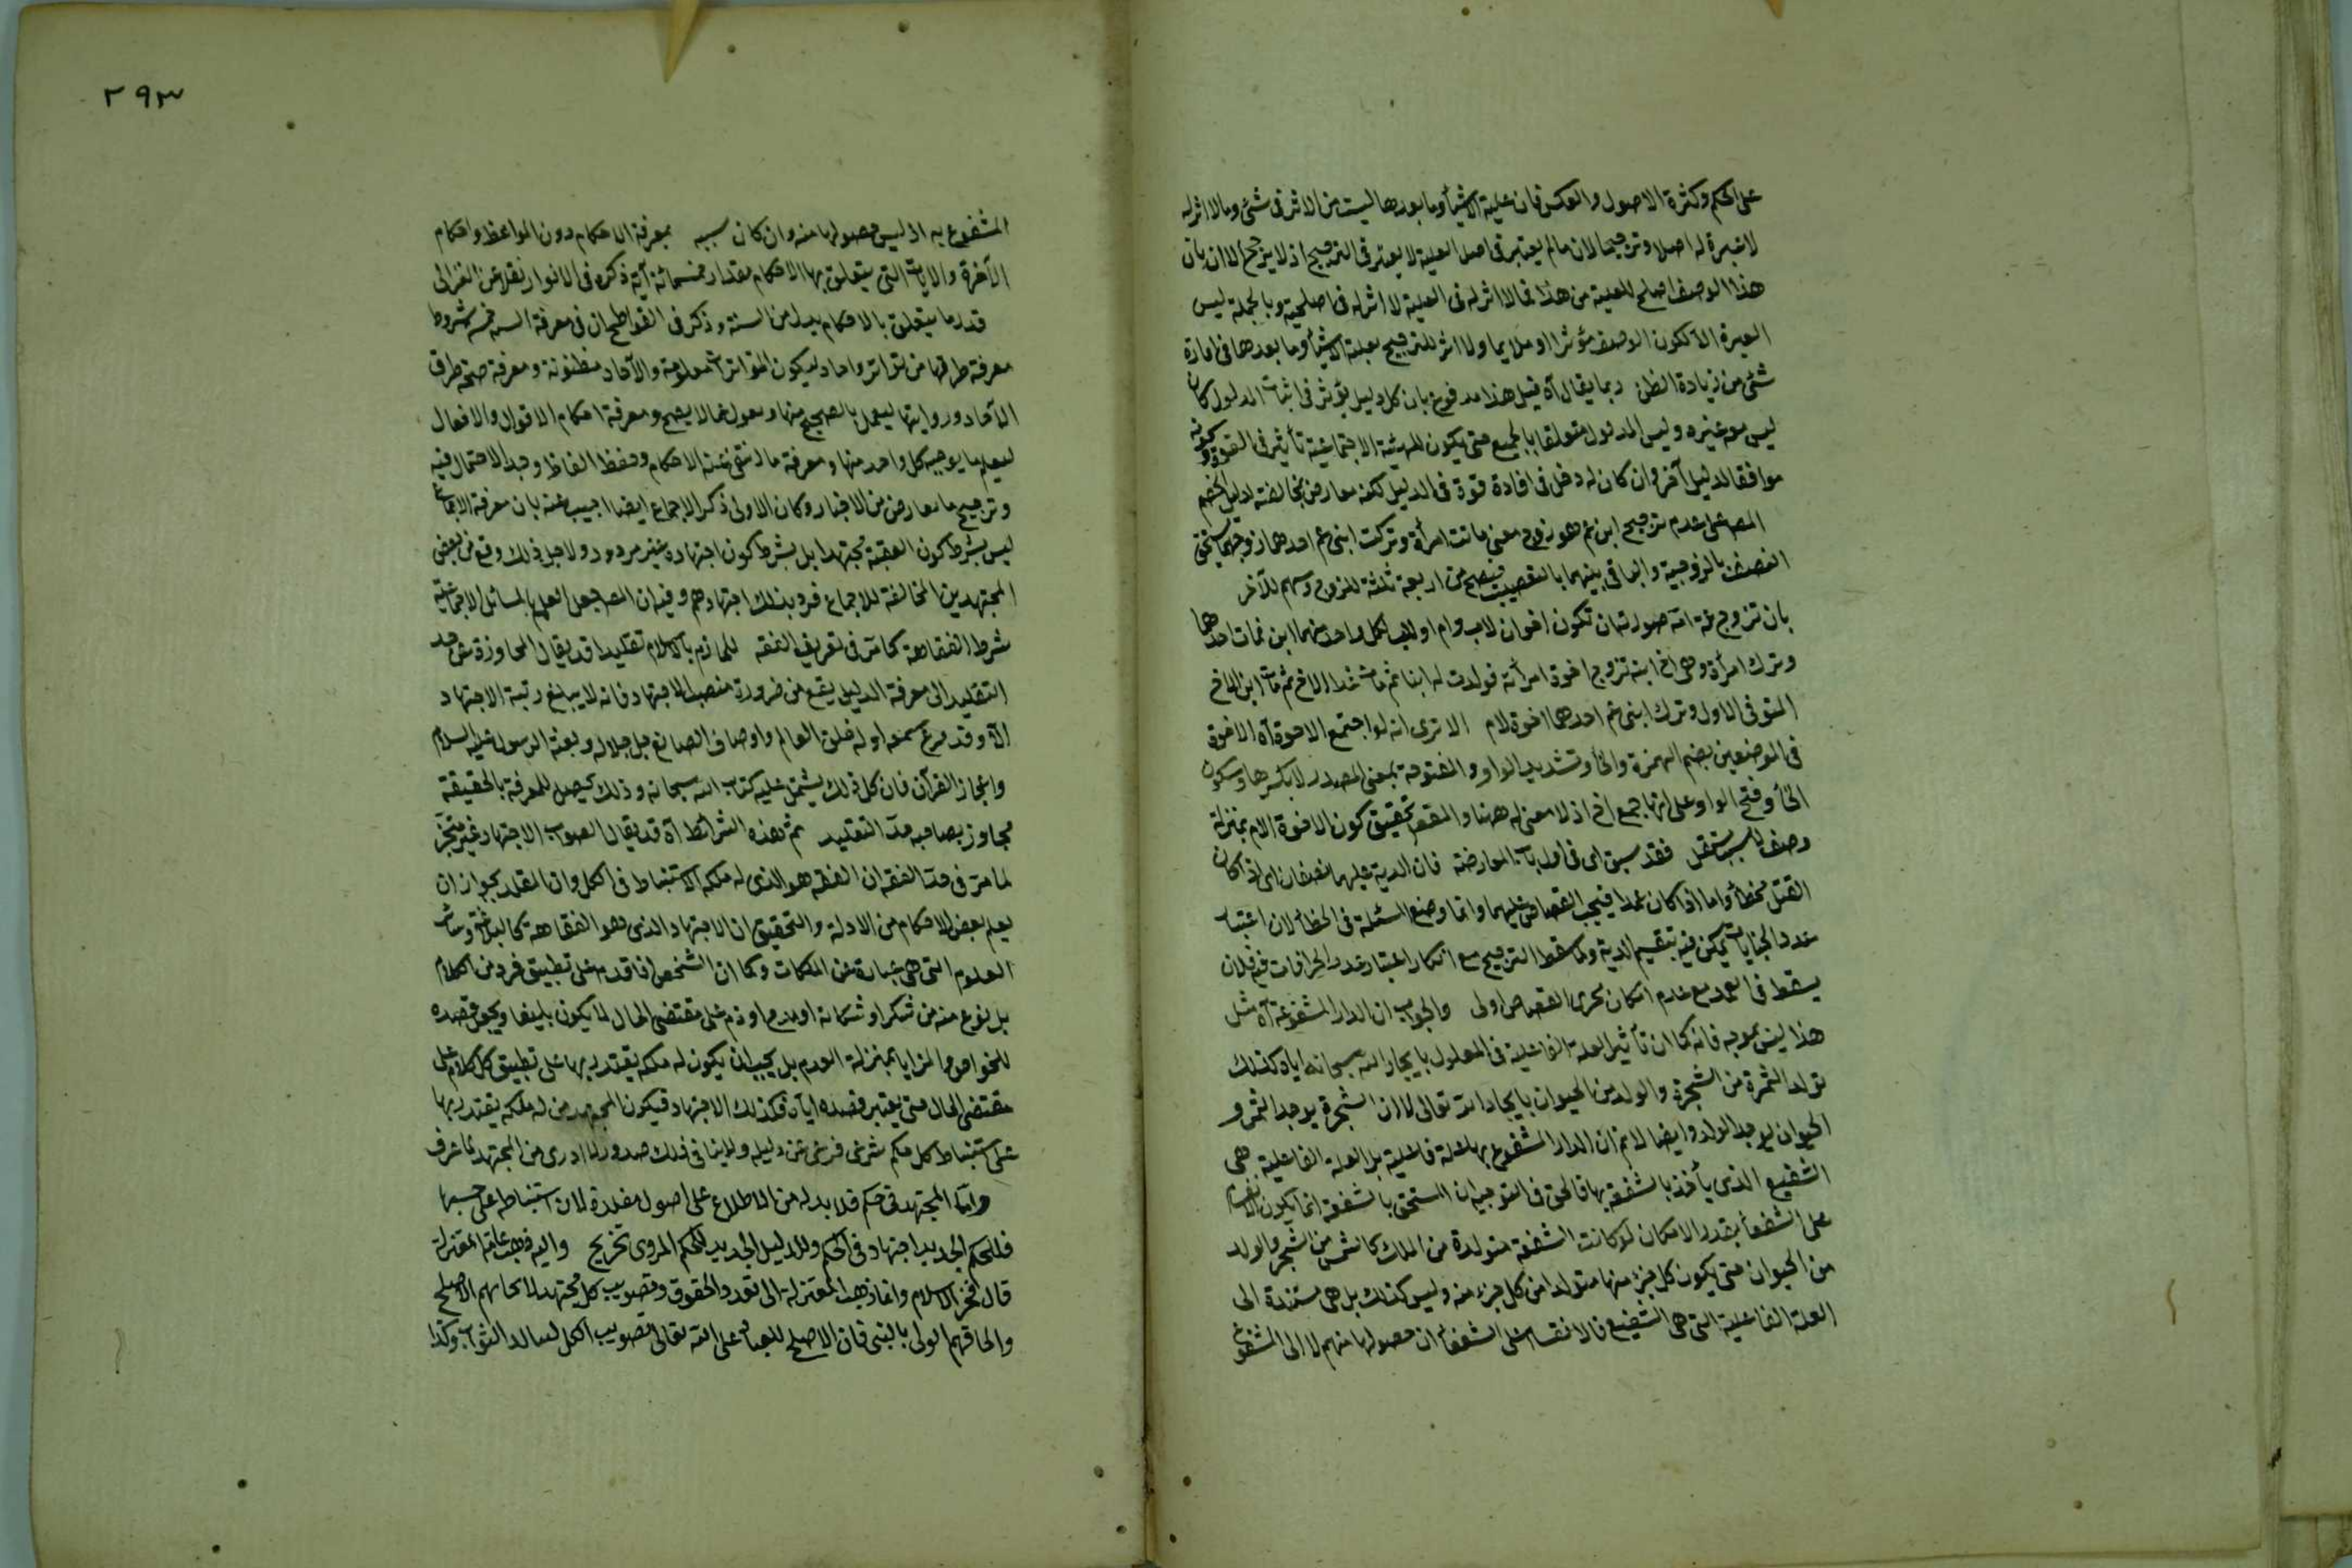 على الحكم وكثرة الاصول والعكس فان علية الاشياء وما بعدها ليست من الاثر فى شئ وما لا اثر له
لا عبرة له اصلا وترجيحا لان ما لم يعتبر فى اصل العلية لا يعتبر فى الترجيح اذ لا يرجح الا ان بان
هذا الوصف اصلح للعلية من هذا فما لا اثر له فى العلية لا اثر له فى اصلحية وبالجملة ليس
العبرة الا لكون الوصف مؤثرا او ملايما ولا اثر للترجيح بعلة الاشياء وما بعدها فى افادة
شئ من زيادة الظن ربما يقال آه قيل هذا مدفوع بان كل دليل يؤثر فى اثبات المدلول كان
ليس معه غيره وليس المدلول متعلقا بالجميع حتى يكون للهيئة الاجتماعية تأثير فى القوة وكونه
موافقا لدليل آخر وان كان له دخل فى افادة قوة فى الدليل لكنه معارض بمخالفته لدليل الخصم
المص على عدم ترجيح ابن عم هو زوج معنى ماتت امرأة وتركت ابنى عم احدهما زوجها يستحق
النصف بالزوجية والباقى بينهما بالتعصيب فيصح من اربعة ثلثة للزوج وسهم للآخر
بان تزوج عمه امه صورته ان تكون اخوان لاب وام او لاب لكل واحد منهما ابن فمات احدهما
وترك امرأة وهى ام ابنه تزوج اخوه امرأته فولدت له ابنا ثم مات هذا الاخ ثم مات ابن الاخ
المتوفى الاول وترك ابنى عم احدهما اخوه لام الا ترى انه لو اجتمع الاخوة آه الاخوة
فى الموضعين بضم الهمزة والخاء وتشديد الواو المفتوحة بمعنى المصدر لا بكسرها وسكون
الخاء وفتح الواو على انها جمع اخ اذ لا معنى له ههنا والمقصد تحقيق كون الاخوة الام بمنزلة
وصف لا سبب مستقل فقد سبق اى فى اول باب المعارضة فان الدية عليهما نصفان اى اذا كان
القتل خطأ واما اذا كان عمدا فيجب القصاص عليهما وانما وضع المسئلة فى الخطأ لان اعتبار
عدد الجنايات يمكن فيه بتقسيم الدية ولما سقط الترجيح مع امكان اعتبار عدد الجراحات فيه فلان
يسقط فى العمد مع عدم امكان تجزى القصاص اولى والجواب ان الدار المشفوعة آه مثل
هذا ليس بموجه فانه كما ان تأثير العلة الفاعلية فى المعلول بايجاد الله سبحانه اياه كذلك
تولد الثمرة من الشجرة والولد من الحيوان بايجاد الله تعالى لا ان الشجرة يوجد الثمر و
الحيوان يوجد الولد وايضا لا نم ان الدار المشفوع بها علة فاعلية بل العلة الفاعلية هى
الشفيع الذى يأخذ بالشفعة بها فالحق فى التوجيه ان المستحق بالشفعة انما يكون الانقسام
على الشفعاء بقدر الامكان لو كانت الشفعة متولدة من الملك كالثمر من الشجر والولد
من الحيوان حتى يكون كل جزء منها متولدا من كل جزء منه وليس كذلك بل هى مستندة الى
العلة الفاعلية التى هى الشفيع فالانقسام على الشفعاء ان حصولها منهم لا الى المشفوع
٢٩٣
المشفوع به اذ ليس حصولها منه وان كان سببه بمعرفة الاحكام دون المواعظ واحكام
الآخرة والايات التى يتعلق بها الاحكام مقدار خمسمائة آية ذكره فى الانوار نقلا عن الغزالى
قدر ما يتعلق بالاحكام بدل من السنة وذكر فى القواطع ان فى معرفة السنة خمسة شروط
معرفة طرقها من تواتر واحاد ليكون المتواترات معلومة والآحاد مظنونة ومعرفة صحة طرق
الآحاد ورواتها ليعمل بالصحيح منها ويعدل عما لا يصح ومعرفة احكام الاقوال والافعال
ليعلم ما يوجبه كل واحد منها ومعرفة ما انتفى عنه الاحكام وحفظ الفاظ وجد الاحتمال فيه
وترجيح ما تعارض من الاخبار وكان الاولى ذكر الاجماع ايضا اجيب عنه بان معرفة الاجماع
ليس بشرط كون الفقيه مجتهدا بل بشرط كون اجتهاده غير مردود ولاجل ذلك وقع من بعض
المجتهدين المخالفة للاجماع فرد بذلك اجتهادهم وفيه ان المص جعل العلم بالمسائل الاجماعية
شرط الفقاهة كما مر فى تعريف الفقه للجازم بالاسلام تقليدا قد يقال المجاوزة عن حد
التقليد الى معرفة الدليل يقع من ضرورة منصب الاجتهاد فانه لا يبلغ رتبة الاجتهاد
الا وقد قرع سمعه ادلة خلق العالم واوصاف الصانع جل جلاله وبعثة الرسول عليه السلام
واعجاز القرآن فان كل ذلك يشتمل عليه كتاب الله سبحانه وذلك يحصل للمعرفة بالحقيقة
مجاوز بصاحبه حد التقليد ثم هذه الشرائط آه قد يقال الصواب الاجتهاد غير متجز
لما مر فى حد الفقه ان الفقه هو الذى له ملكه الاستنباط فى الكل وان المقلد يجوز ان
يعلم بعض الاحكام من الادلة والتحقيق ان الاجتهاد الذى هو الفقاهة كالبلاغة وسائر
العلوم التى هى عبارة عن الملكات وكما ان الشخص اذا قدم على تطبيق فرد من الكلام
بل نوع منه من شكر او شكاية او مدح او ذم على مقتضى الحال لا يكون بليغا ويجعل قصده
للخواص والمزايا بمنزلة العدم بل يجب ان يكون له ملكه يقتدر بها على تطبيق كل كلام على
مقتضى الحال حتى يعتبر قصده اياه فكذلك الاجتهاد فيكون المجتهد من له ملكه يقتدر بها
على استنباط كل حكم شرعى فرعى عن دليله ولا ينافى ذلك صدور لا ادرى من المجتهد لما عرف
واما المجتهد فى حكم فلا بد له من الاطلاع على اصول مقلده لان استنباطه على حسبها
فللحكم الجديد اجتهاد فى الحكم وللدليل الجديد للحكم المروى تخريج واليه ذهب عامة المعتزلة
قال فخر الاسلام وانما ذهب المعتزلة الى تعدد الحقوق وتصويب كل مجتهد لايجابهم الاصلح
والحاقهم الولى بالنبى فان الاصلح للعباد على الله تعالى تصويب الكل لينالوا الثواب وكذا